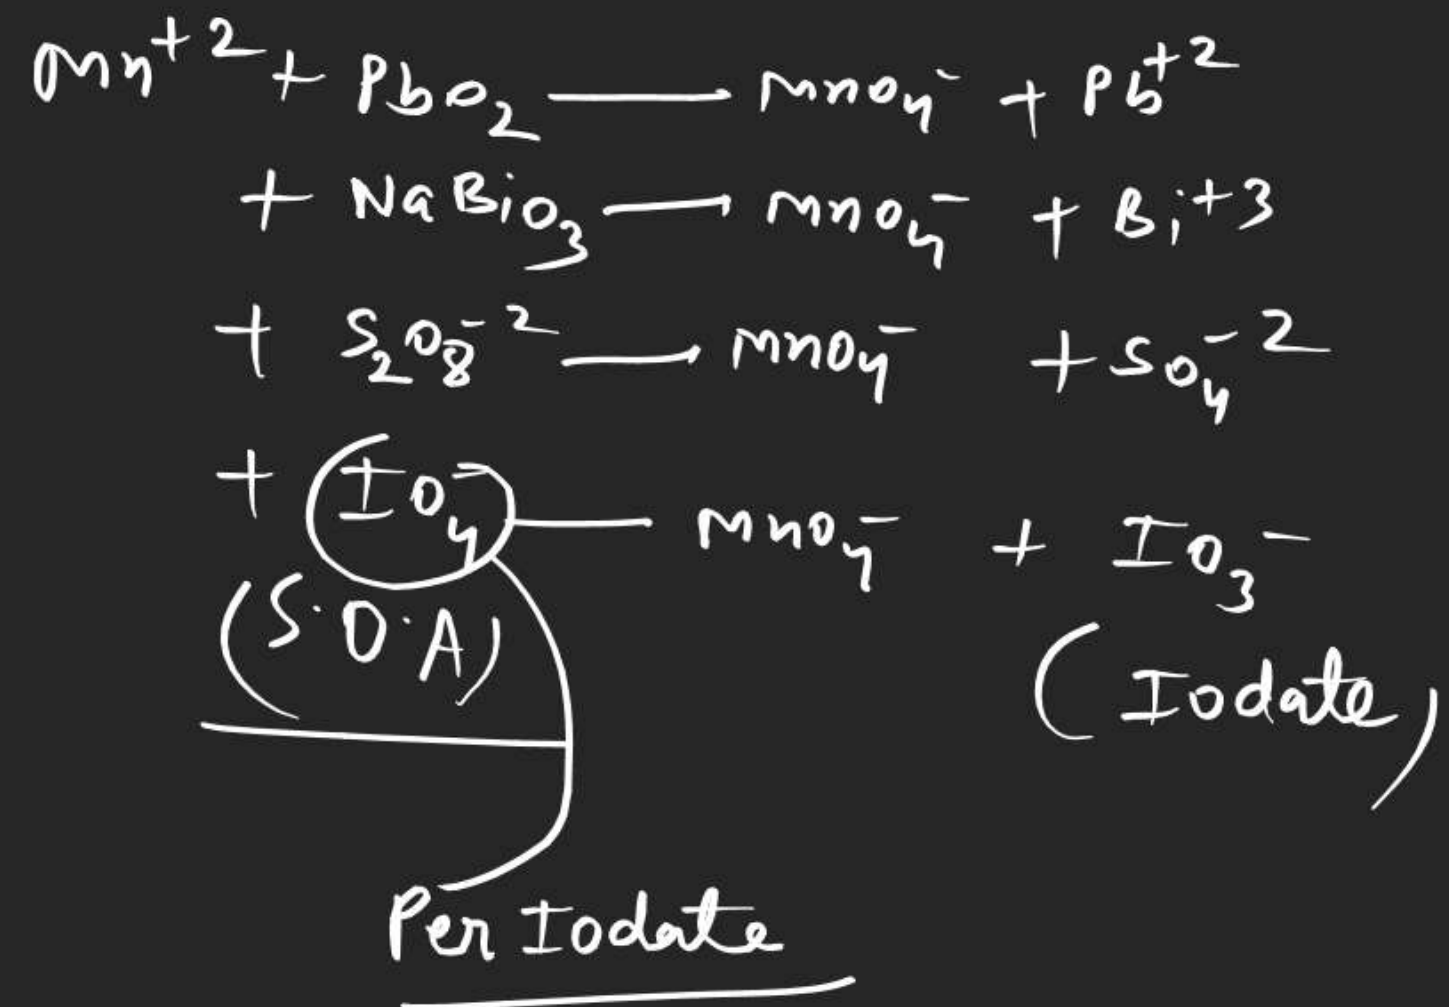 Mn⁺² + PbO₂ ⟶ MnO₄⁻ + Pb⁺²
+ NaBiO₃ ⟶ MnO₄⁻ + Bi⁺³
+ S₂O₈⁻² ⟶ MnO₄⁻ + SO₄⁻²
+ IO₄⁻ — MnO₄⁻ + IO₃⁻
(S.O.A) (Iodate)
Per Iodate